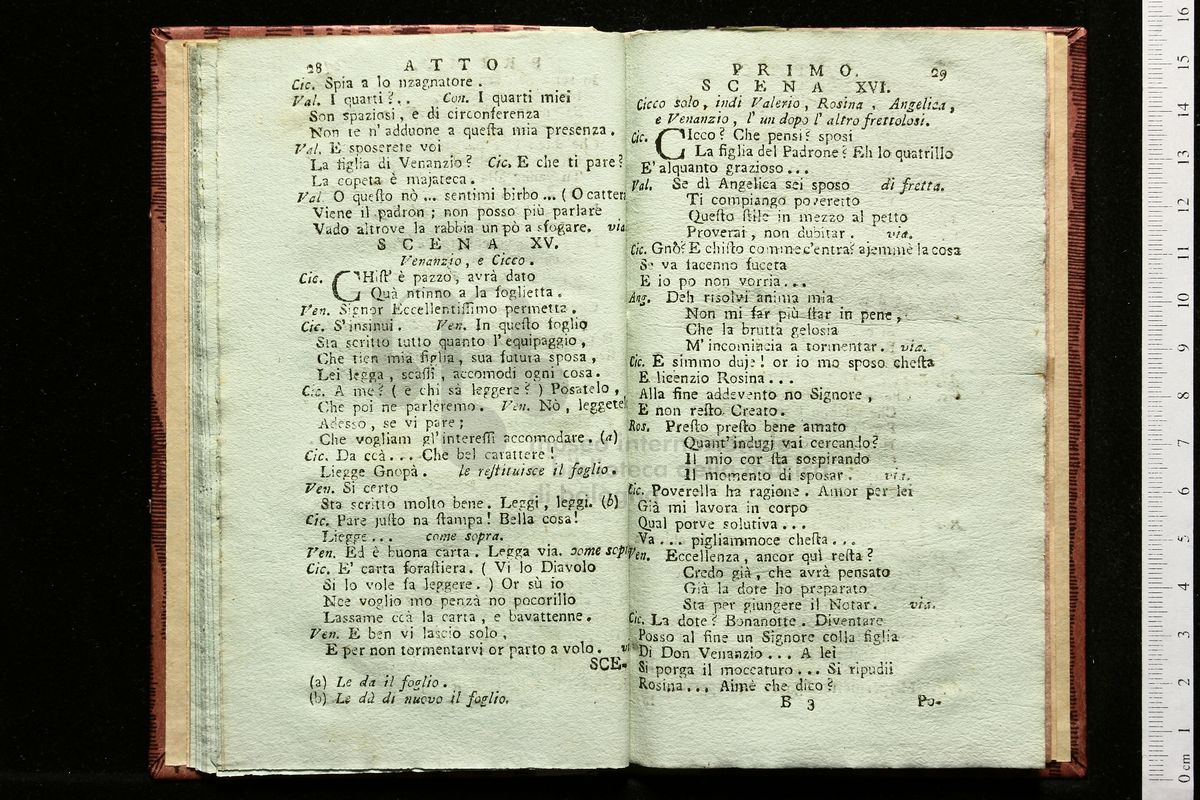 28 ATTO
Cic. Spia a lo nzagnatore.
Val. I quarti?.. Con. I quarti miei
Son spaziosi, e di circonferenza
Non te n'adduone a questa mia presenza.
Val. E sposerete voi
La figlia di Venanzio? Cic. E che ti pare?
La copeta è majateca.
Val O questo nò ... sentimi birbo ... (O catteri
Viene il padron; non posso più parlare
Vado altrove la rabbia un pò a sfogare. via
SCENA XV.
Venanzio, e Cicco.
Cic. CHist' è pazzo, avrà dato
Quà ntinno a la foglietta.
Ven. Signor Eccellentissimo permetta.
Cic. S'insinui. Ven. In questo foglio
Sta scritto tutto quanto l'equipaggio,
Che tien mia figlia, sua futura sposa,
Lei legga, scassi, accomodi ogni cosa.
Cic. A me? (e chi sà leggere?) Posatelo,
Che poi ne parleremo. Ven. Nò, leggete
Adesso, se vi pare;
Che vogliam gl'interessi accomodare. (a)
Cic. Da ccà... Che bel carattere!
Liegge Gnopà. le restituisce il foglio.
Ven. Si certo
Sta scritto molto bene. Leggi, leggi. (b)
Cic. Pare justo na stampa! Bella cosa!
Liegge... come sopra.
Ven. Ed è buona carta. Legga via. come sopr
Cic. E' carta forastiera. (Vi lo Diavolo
Si lo vole fa leggere.) Or sù io
Nce voglio mo penzà no pocorillo
Lassame ccà la carta, e bavattenne.
Ven. E ben vi lascio solo,
E per non tormentarvi or parto a volo. vi
SCE-
(a) Le da il foglio.
(b) Le dà di nuovo il foglio.
PRIMO. 29
SCENA XVI.
Cicco solo, indi Valerio, Rosina, Angelica,
e Venanzio, l'un dopo l'altro frettolosi.
Cic. CIcco? Che pensi? sposi
La figlia del Padrone? Eh lo quatrillo
E' alquanto grazioso...
Val. Se di Angelica sei sposo di fretta.
Ti compiango poveretto
Questo stile in mezzo al petto
Proverai, non dubitar. via.
Cic. Gnò? E chisto comme c'entra? ajemmè la cosa
Se va facenno fuceta
E io po non vorria...
Ang. Deh risolvi anima mia
Non mi far più star in pene,
Che la brutta gelosia
M'incomincia a tormentar. via.
Cic. E simmo duje! or io mo sposo chesta
E licenzio Rosina...
Alla fine addevento no Signore,
E non resto Creato.
Ros. Presto presto bene amato
Quant'indugj vai cercando?
Il mio cor sta sospirando
Il momento di sposar. via.
Cic. Poverella ha ragione. Amor per lei
Già mi lavora in corpo
Qual porve solutiva...
Va... pigliammoce chesta...
Ven. Eccellenza, ancor quì resta?
Credo già, che avrà pensato
Già la dote ho preparato
Sta per giungere il Notar. via.
Cic. La dote? Bonanotte. Diventare
Posso al fine un Signore colla figlia
Di Don Venanzio... A lei
Si porga il moccaturo... Si ripudii
Rosina... Aimè che dico?
B 3 Po-